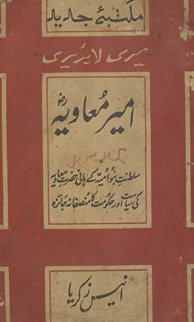 مکتبۂ جدید
میری لائبریری
امیر معاویہؓ
سلطنت بنو امیہ کے بانی حضرت معاویہ
کی سیاست اور حکومت کا منصفانہ جائزہ
انیس زکریا